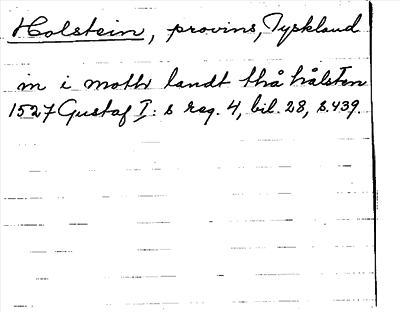 Holstein, provins, Tyskland
in i moth landt thå hålsten
1527 Gustaf I:s reg. 4, bil. 28, s. 439.